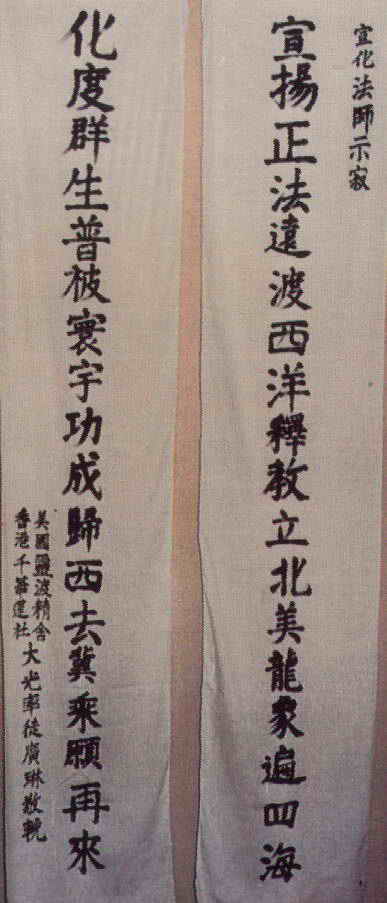 宣化法師示寂
宣揚正法遠渡西洋釋教立北美龍象遍四海
化度群生普被寰宇功成歸西去冀乘願再來
美國靈波精舍
香港千華蓮社
大光率徒廣琳敬輓